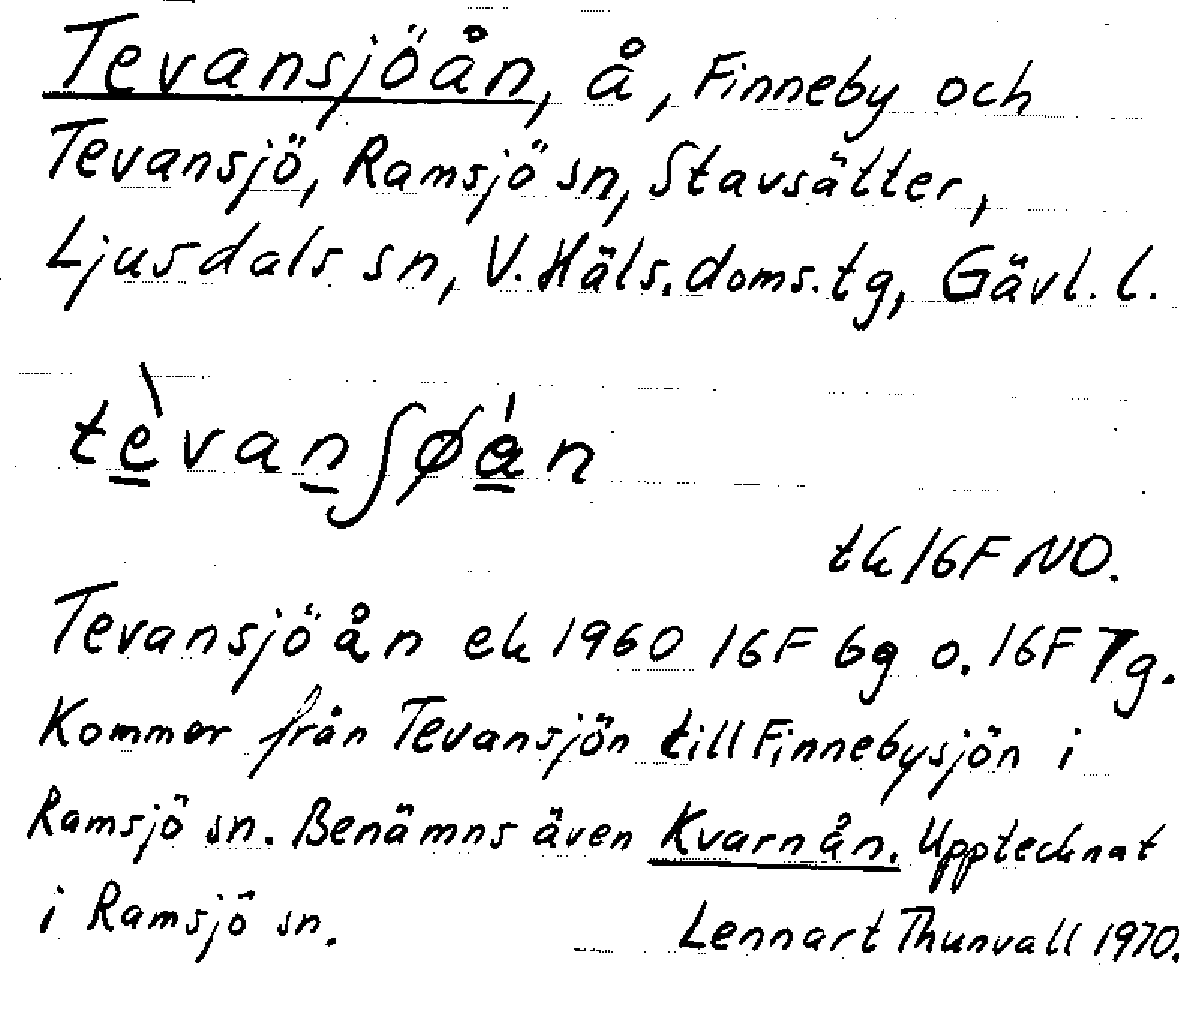 Tevansjöån, å, Finneby och
Tevansjö, Ramsjö sn, Stavsätter,
Ljusdals sn, V. Häls. doms. tg, Gävl. l.
tè̱van̠ʃøá̱n
tk 16F NO.
Tevansjöån ek 1960 16F 6g o. 16F 7g.
Kommer från Tevansjön till Finnebysjön i
Ramsjö sn. Benämns även Kvarnån. Upptecknat
i Ramsjö sn. Lennart Thunvall 1970.